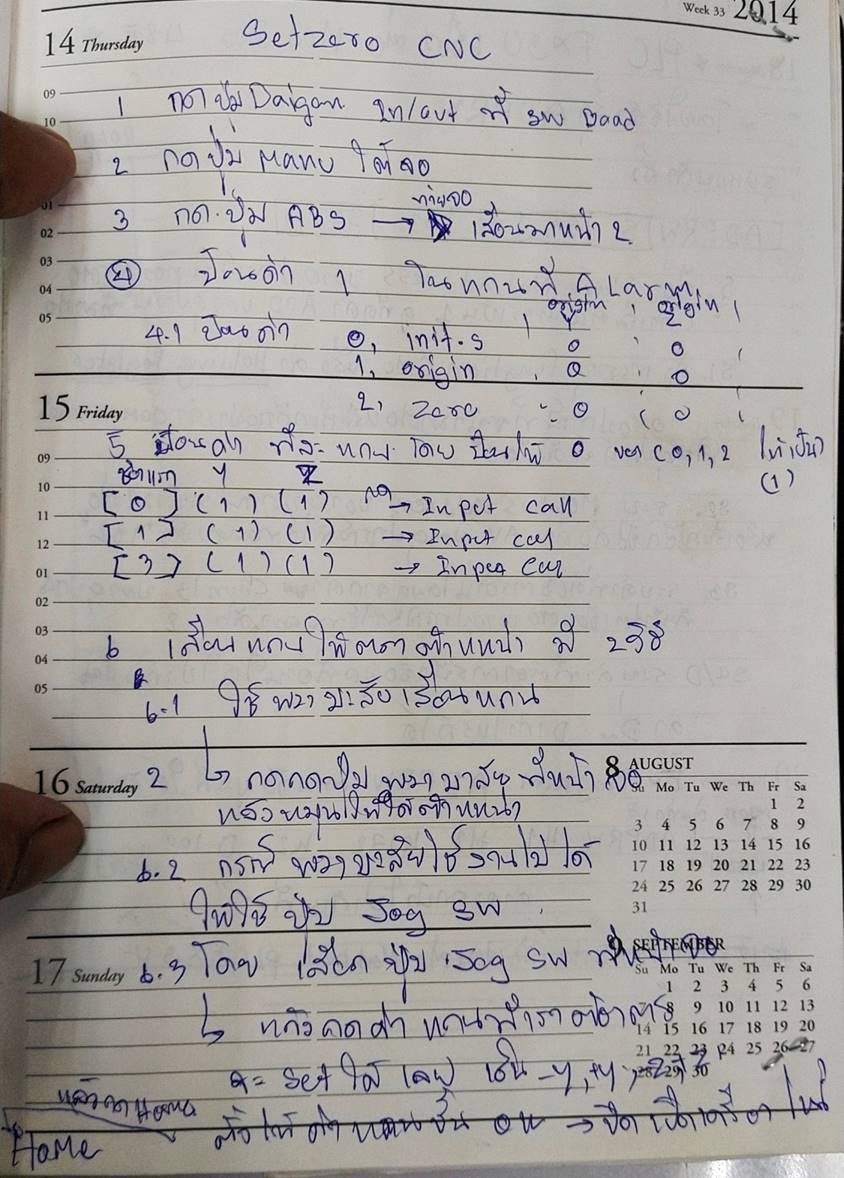 Week 33 2014
14 Thursday Setzero CNC
09
10 1 กดปุ่ม Daigan In/out ที่ SW Boad
2 กดปุ่ม Manu ใต้จอ
01 ท้ายจอ
02 3 กดปุ่ม ABS → เลื่อนมาหน้า 2
03
04 4 ป้อนค่า 1 ในแกนที่ ALarm
origin origin
05 4.1 ป้อนค่า 0, init.s 0 0
1, origin 0 0
15 Friday 2, Zero 0 0
09 5 ป้อนค่า ทีละ แกน โดย ป้อนให้ 0 ของ (0,1,2 ให้เป็น
(1)
ชุดแรก Y Z
10 [0] (1) (1) กด → Input call
11 [1] (1) (1) → Input call
12 [3] (1) (1) → Input Call
01
02
03 6 เลื่อนแกนให้ตรงตำแหน่ง มี 2 วิธี
04
05 6.1 ใช้พวงมาลัยเลื่อนแกน
16 Saturday 2 ↳ กดปุ่ม พวงมาลัย ที่หน้าจอ
แล้วหมุนให้ได้ตำแหน่ง
6.2 กรณี พวงมาลัยใช้งานไม่ได้
ให้ใช้ ปุ่ม Jog SW
17 Sunday 6.3 โดย เลือก ปุ่ม Jog SW ที่หน้าจอ
↳ แล้วกดค่า แกนที่เราต้องการ
Set ได้ เลย เช่น -Y, +Y, -Z, +Z
แล้วกด Home ตั้งให้ค่าแกนขึ้น OK → ปิดเปิดเครื่องใหม่
Home
8 AUGUST
Su Mo Tu We Th Fr Sa
1 2
3 4 5 6 7 8 9
10 11 12 13 14 15 16
17 18 19 20 21 22 23
24 25 26 27 28 29 30
31
9 SEPTEMBER
Su Mo Tu We Th Fr Sa
1 2 3 4 5 6
7 8 9 10 11 12 13
14 15 16 17 18 19 20
21 22 23 24 25 26 27
28 29 30